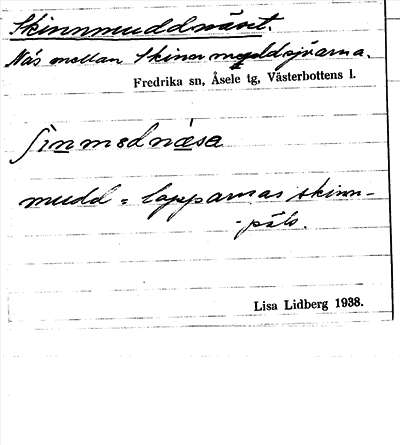 Skinnmuddnäset.
Näs mellan Skinnmuddsjöarna.
Fredrika sn, Åsele tg, Västerbottens l.
ʃinmednäsa
mudd = lapparnas skinn-
-päls.
Lisa Lidberg 1938.